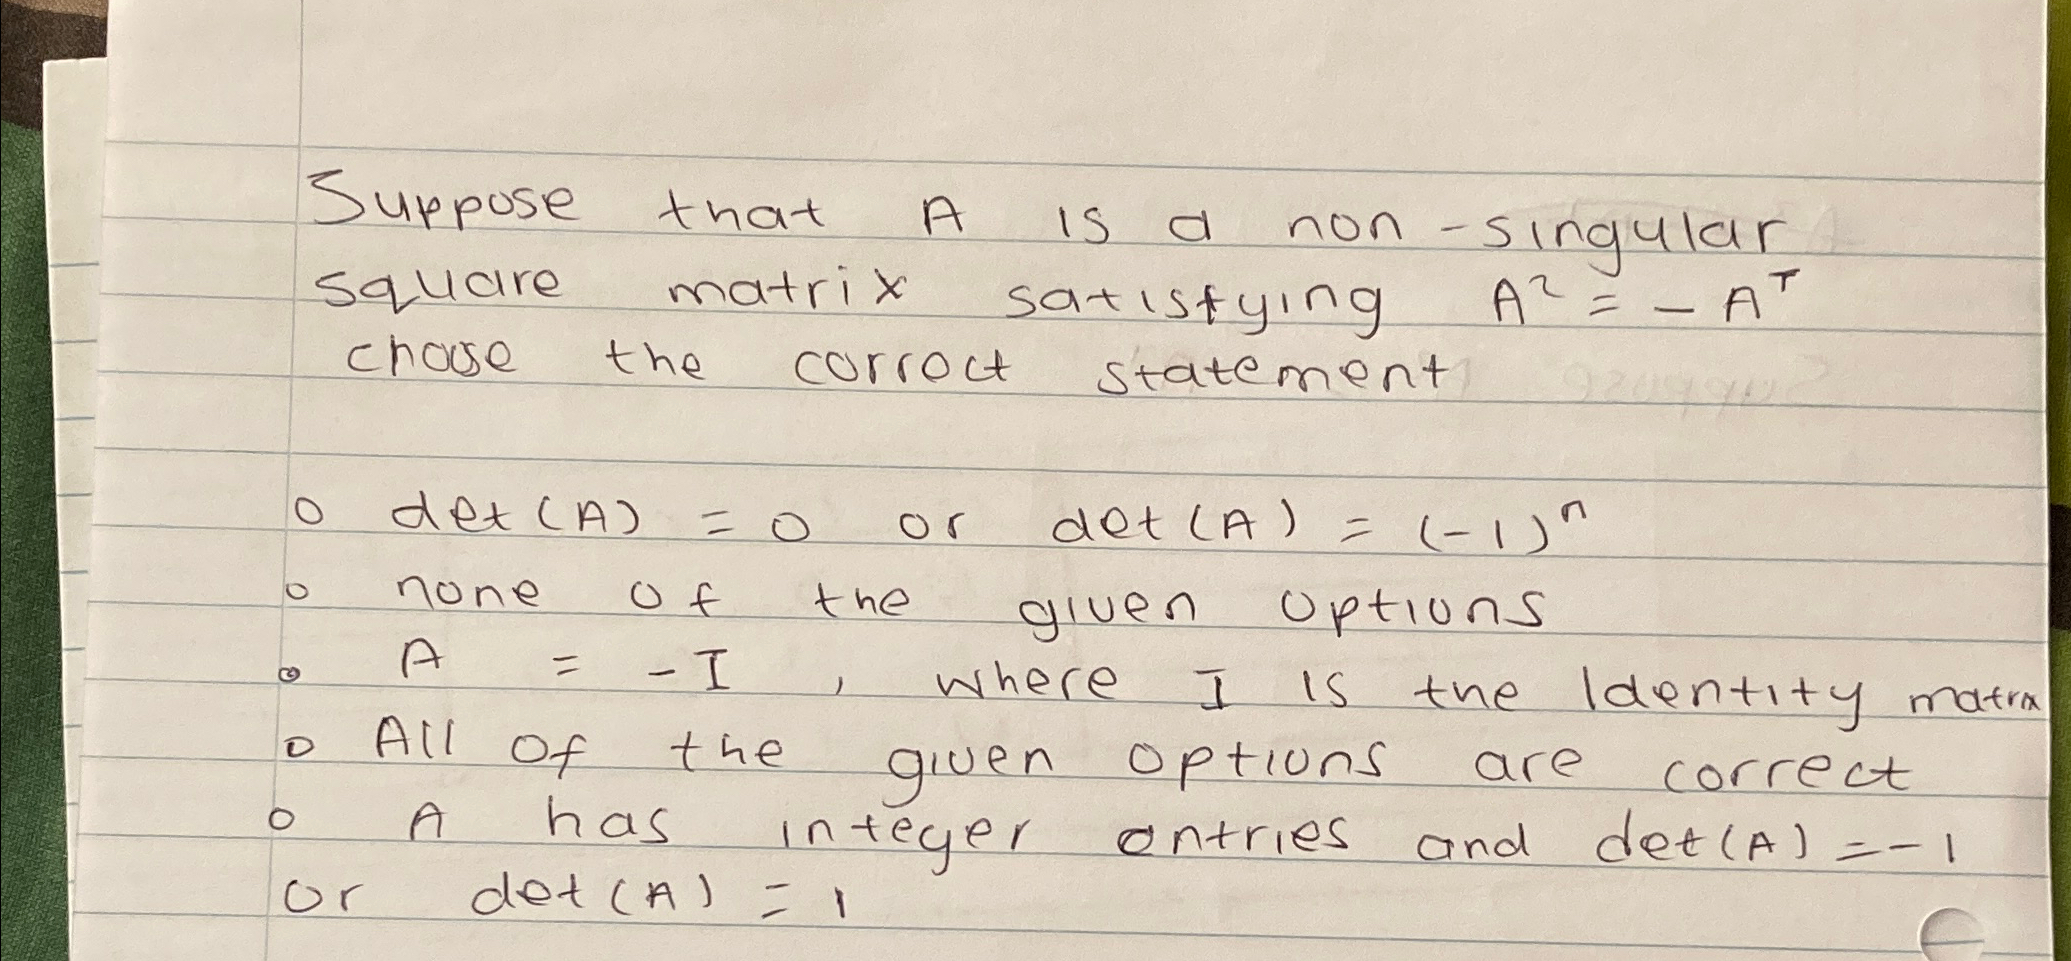 Suppose that A is a non-singular
square matrix satisfying A² = - Aᵀ
choose the correct statement
o det(A) = 0 or det(A) = (-1)ⁿ
o none of the given options
o A = -I, where I is the Identity matrix
o All of the given options are correct
o A has integer entries and det(A) = -1
or det(A) = 1